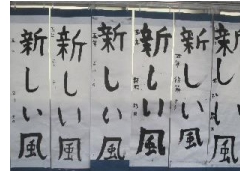 新しい風
新しい風
新しい風
新しい風
新しい風
新しい風